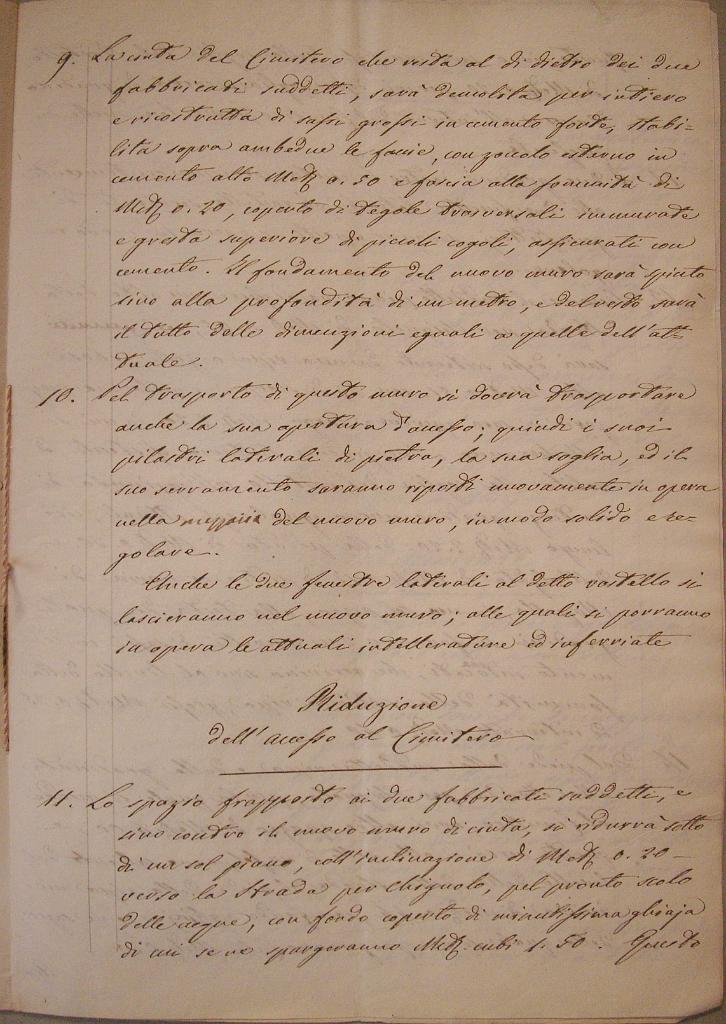 9. La cinta del Cimitero che resta al di dietro dei due
fabbricati suddetti, sarà demolita per intiero
e ricostrutta di sassi grossi in cemento forte, stabi-
lita sopra ambedue le faccie, con zoccolo esterno in
cemento alto Met. 0.50 e fascia alla sommità di
Met. 0.20, coperto di tegole trasversali immurate
e gresta superiore di piccoli cogoli, assicurati con
cemento. Il fondamento del nuovo muro sarà spinto
sino alla profondità di un metro, e del resto sarà
il tutto delle dimenzioni eguali a quelle dell'at-
tuale.
10. Pel trasporto di questo muro si dovrà trasportare
anche la sua apertura d'accesso; quindi i suoi
pilastri laterali di pietra, la sua soglia, ed il
suo serramento saranno riposti nuovamente in opera
nella del nuovo muro, in modo solido e re-
golare.
Anche le due finestre laterali al detto rastello si
lascieranno nel nuovo muro; alle quali si porranno
in opera le attuali intellerature ed inferriate
Riduzione
dell'accesso al Cimitero
11. Lo spazio frapposto ai due fabbricati suddetti, e
sino contro il nuovo muro di cinta, si ridurrà sotto
di un sol piano, coll'inclinazione di Met. 0.20
verso la Strada per Chignolo, pel pronto scolo
delle acque, con fondo coperto di minutissima ghiaja
di cui se ne spargeranno Met. cubi 1.50. Questo